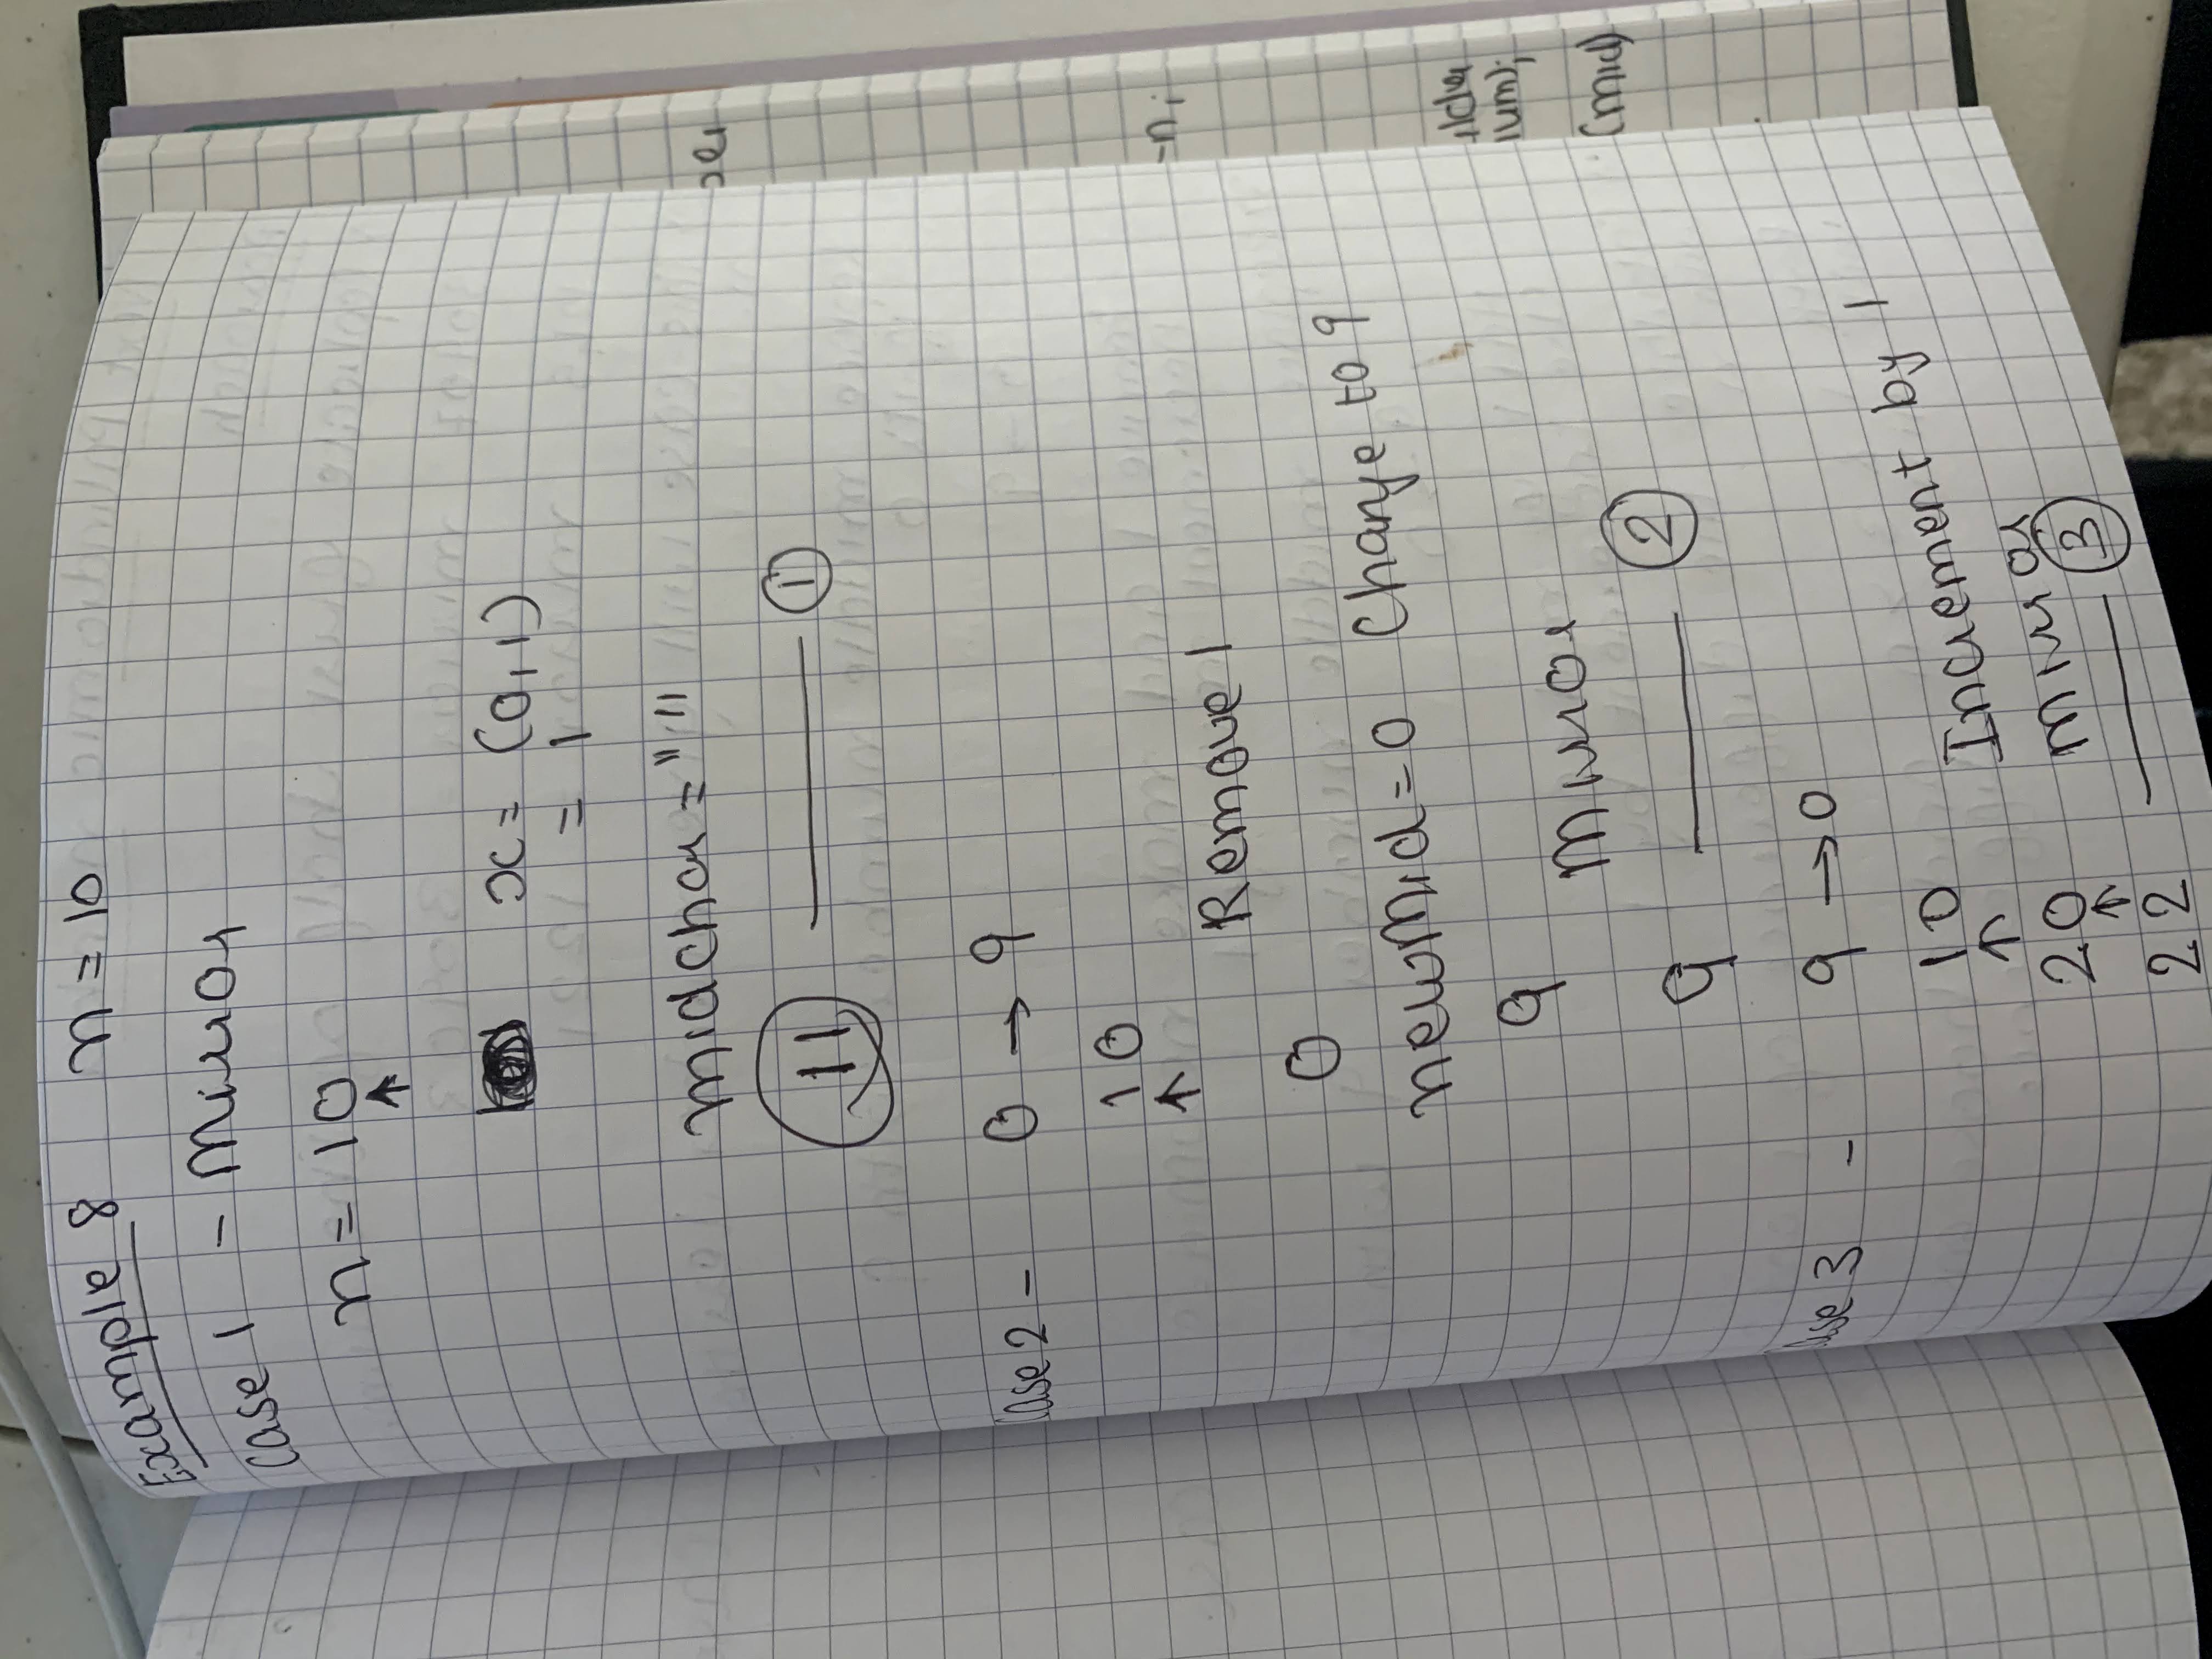 Example 8 n = 10
Case 1 - Mirror
n = 10
↑
x = (0,1)
= 1
midchar = " "
11 ——— ①
Case 2 - 0 → 9
10
↑
Remove 1
0
newMid = 0 Change to 9
9
Mirror
9 ——— ②
Case 3 - 9 → 0
10
↑
Increment by 1
20 Mirror
↑
22 ——— ③
-n;
um);
(mid)